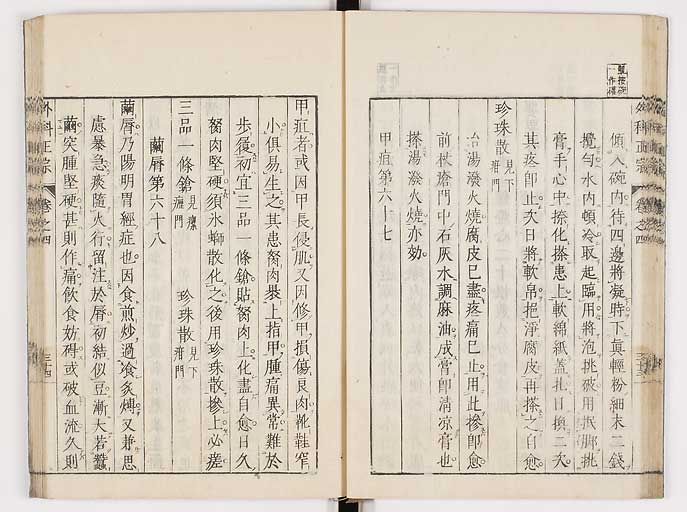 盞按碗
一作
傾入碗内待四邊將凝時下眞輕粉細末二錢
攪勻水内頓冷取起臨用將泡挑破用抿脚挑
膏手心中捺化搽患上軟綿紙蓋扎日換二次
其疼卽止次日將軟帛挹淨腐皮再搽之自愈
珍珠散見下疳門
治湯潑火燒腐皮已盡疼痛已止用此摻卽愈
前杖瘡門中石灰水調麻油成膏卽清凉膏也
搽湯潑火燒亦効
甲疽第六十七
外科正宗 卷之四
甲疽者或因甲長侵肌又因修甲損傷良肉靴鞋窄
小俱易生之其患胬肉裂上指甲腫痛異常難於
步履初宜三品一條鎗貼胬肉上化盡自愈日久
胬肉堅硬須氷螄散化之後用珍珠散摻上必瘥
三品一條鎗見瘰癧門 珍珠散見下疳門
繭脣第六十八
繭脣乃陽明胃經症也因食煎炒過飡炙煿又兼思
慮暴急痰隨火行留注於脣初結似豆漸大若蠶
繭突腫堅硬甚則作痛飲食妨碍或破血流久則
外科正宗 卷之四